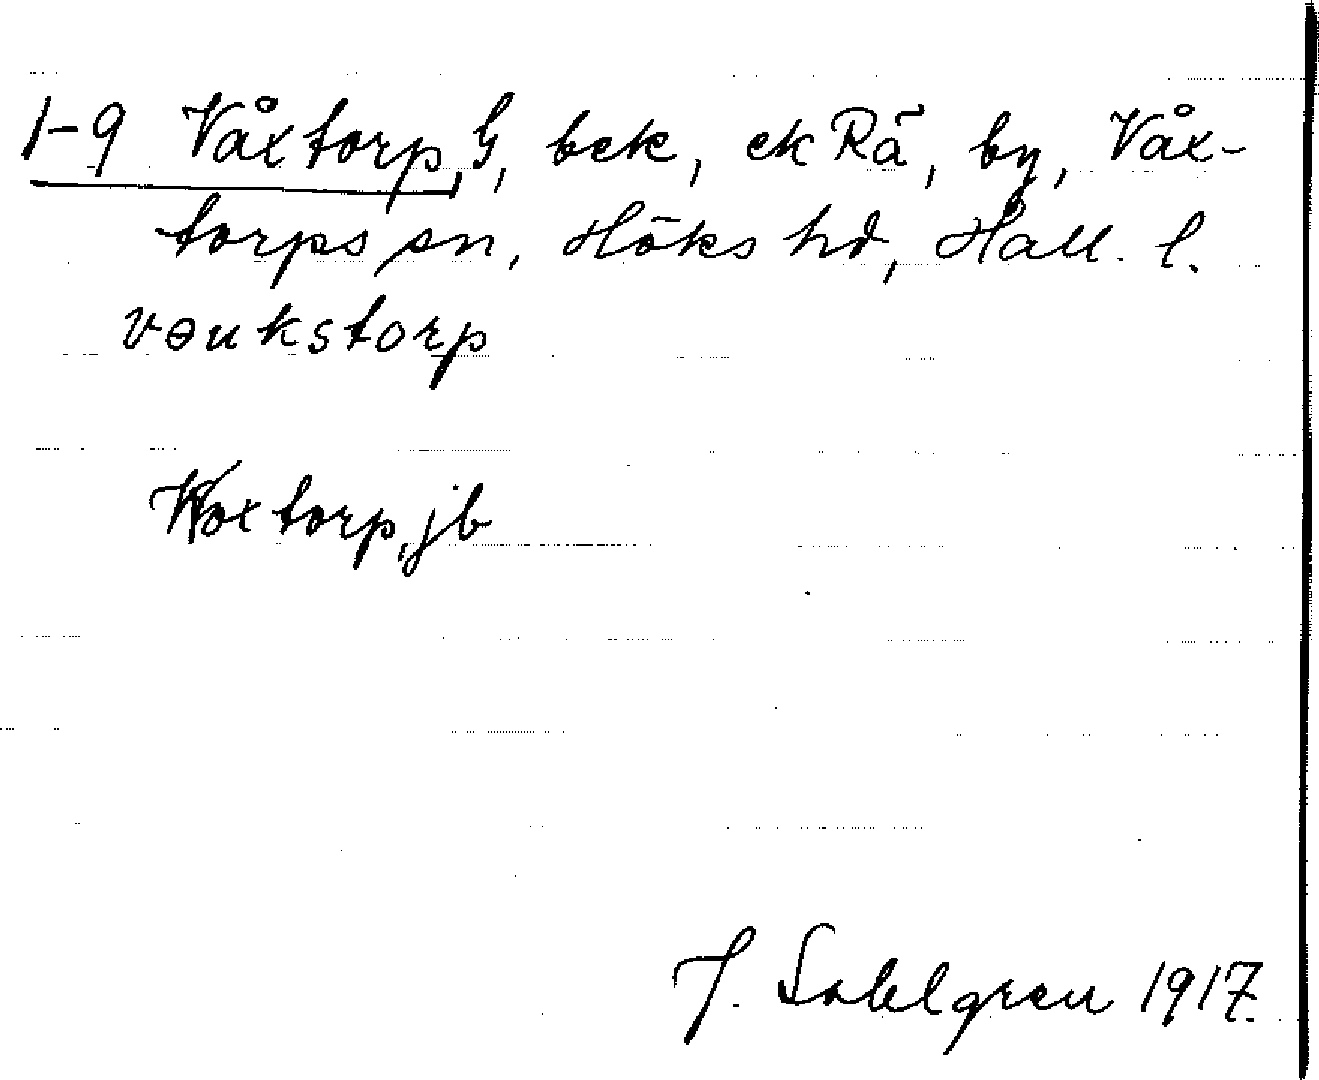 1-9 Våxtorp, G, bek, ek Rå, by, Våx-
torps sn, Höks hd, Hall. l.
vɵukstorp
Woxtorp, jb
J. Sahlgren 1917.